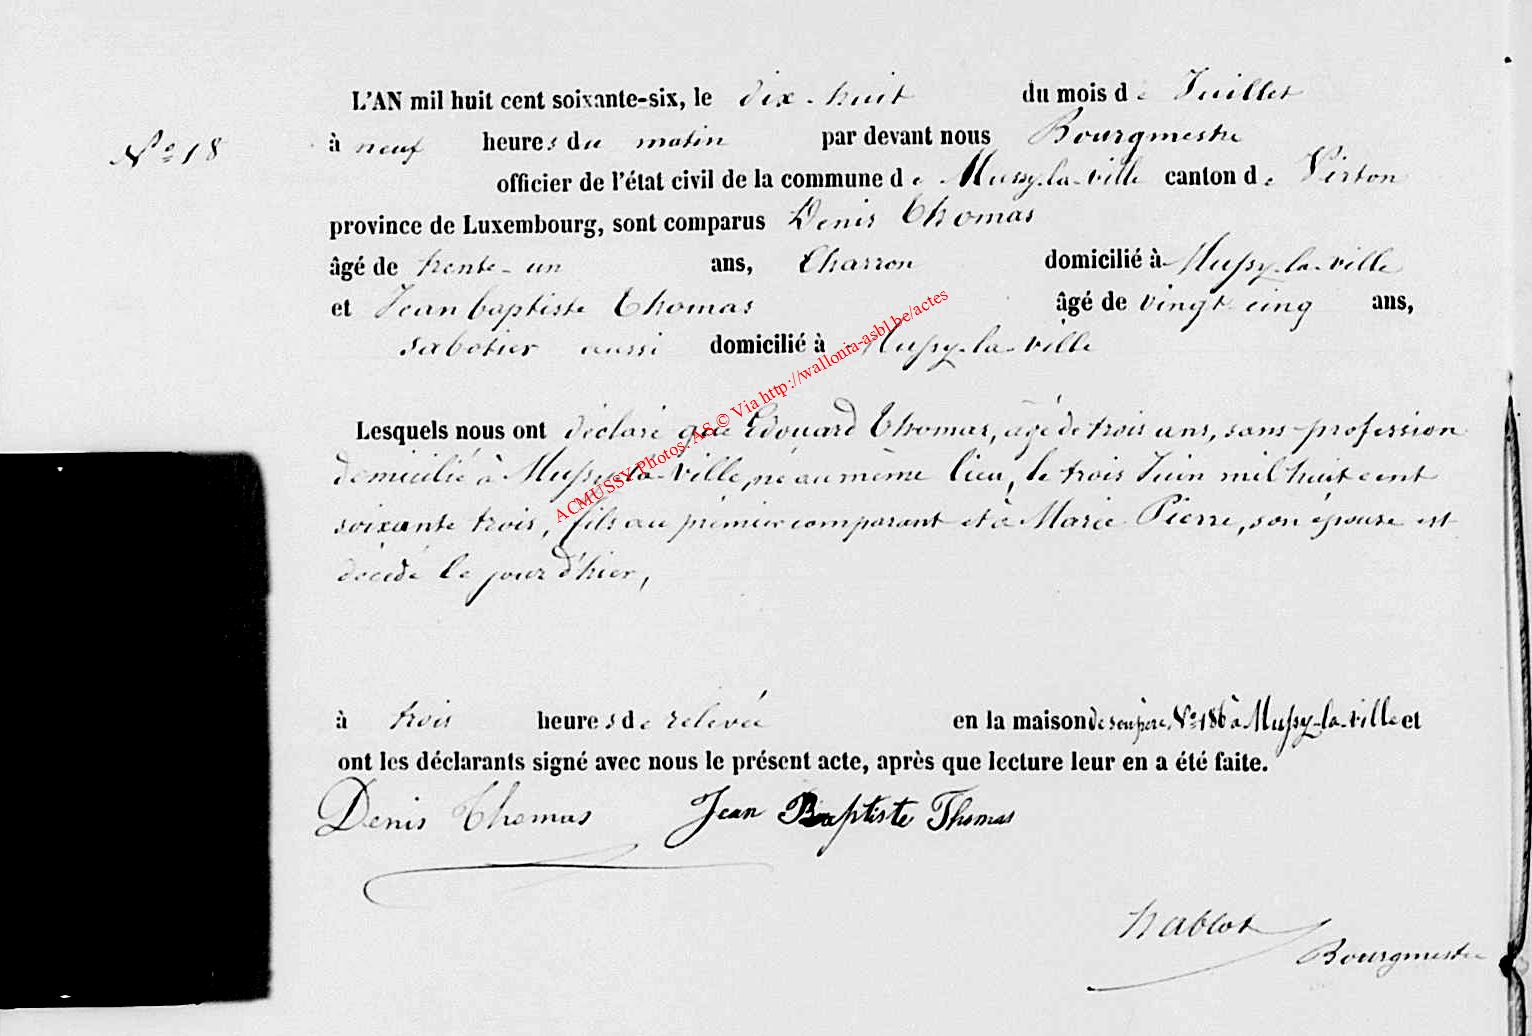 L'AN mil huit cent soixante-six, le dix-huit du mois de Juillet
N° 18
à neuf heures du matin par devant nous Bourgmestre
officier de l'état civil de la commune de Mussy-la-ville canton de Virton
province de Luxembourg, sont comparus Denis Thomas
âgé de trente-un ans, Charron domicilié à Mussy-la-ville
et Jean baptiste Thomas âgé de vingt cinq ans,
sabotier aussi domicilié à Mussy-la-ville
Lesquels nous ont déclaré que Edouard Thomas, âgé de trois ans, sans profession
domicilié à Mussy-la-Ville, né au même lieu, le trois Juin mil huit cent
soixante trois, fils au prémier comparant et à Marie Pierre, son épouse est
décédé le jour d'hier,
à trois heures de relevée en la maison de son père N° 186 à Mussy-la-ville et
ont les déclarants signé avec nous le présent acte, après que lecture leur en a été faite.
Denis Thomas Jean Baptiste Thomas
Bourgmestre
ACMUSSY Photos: AS © Via http://wallonia-asbl.be/actes